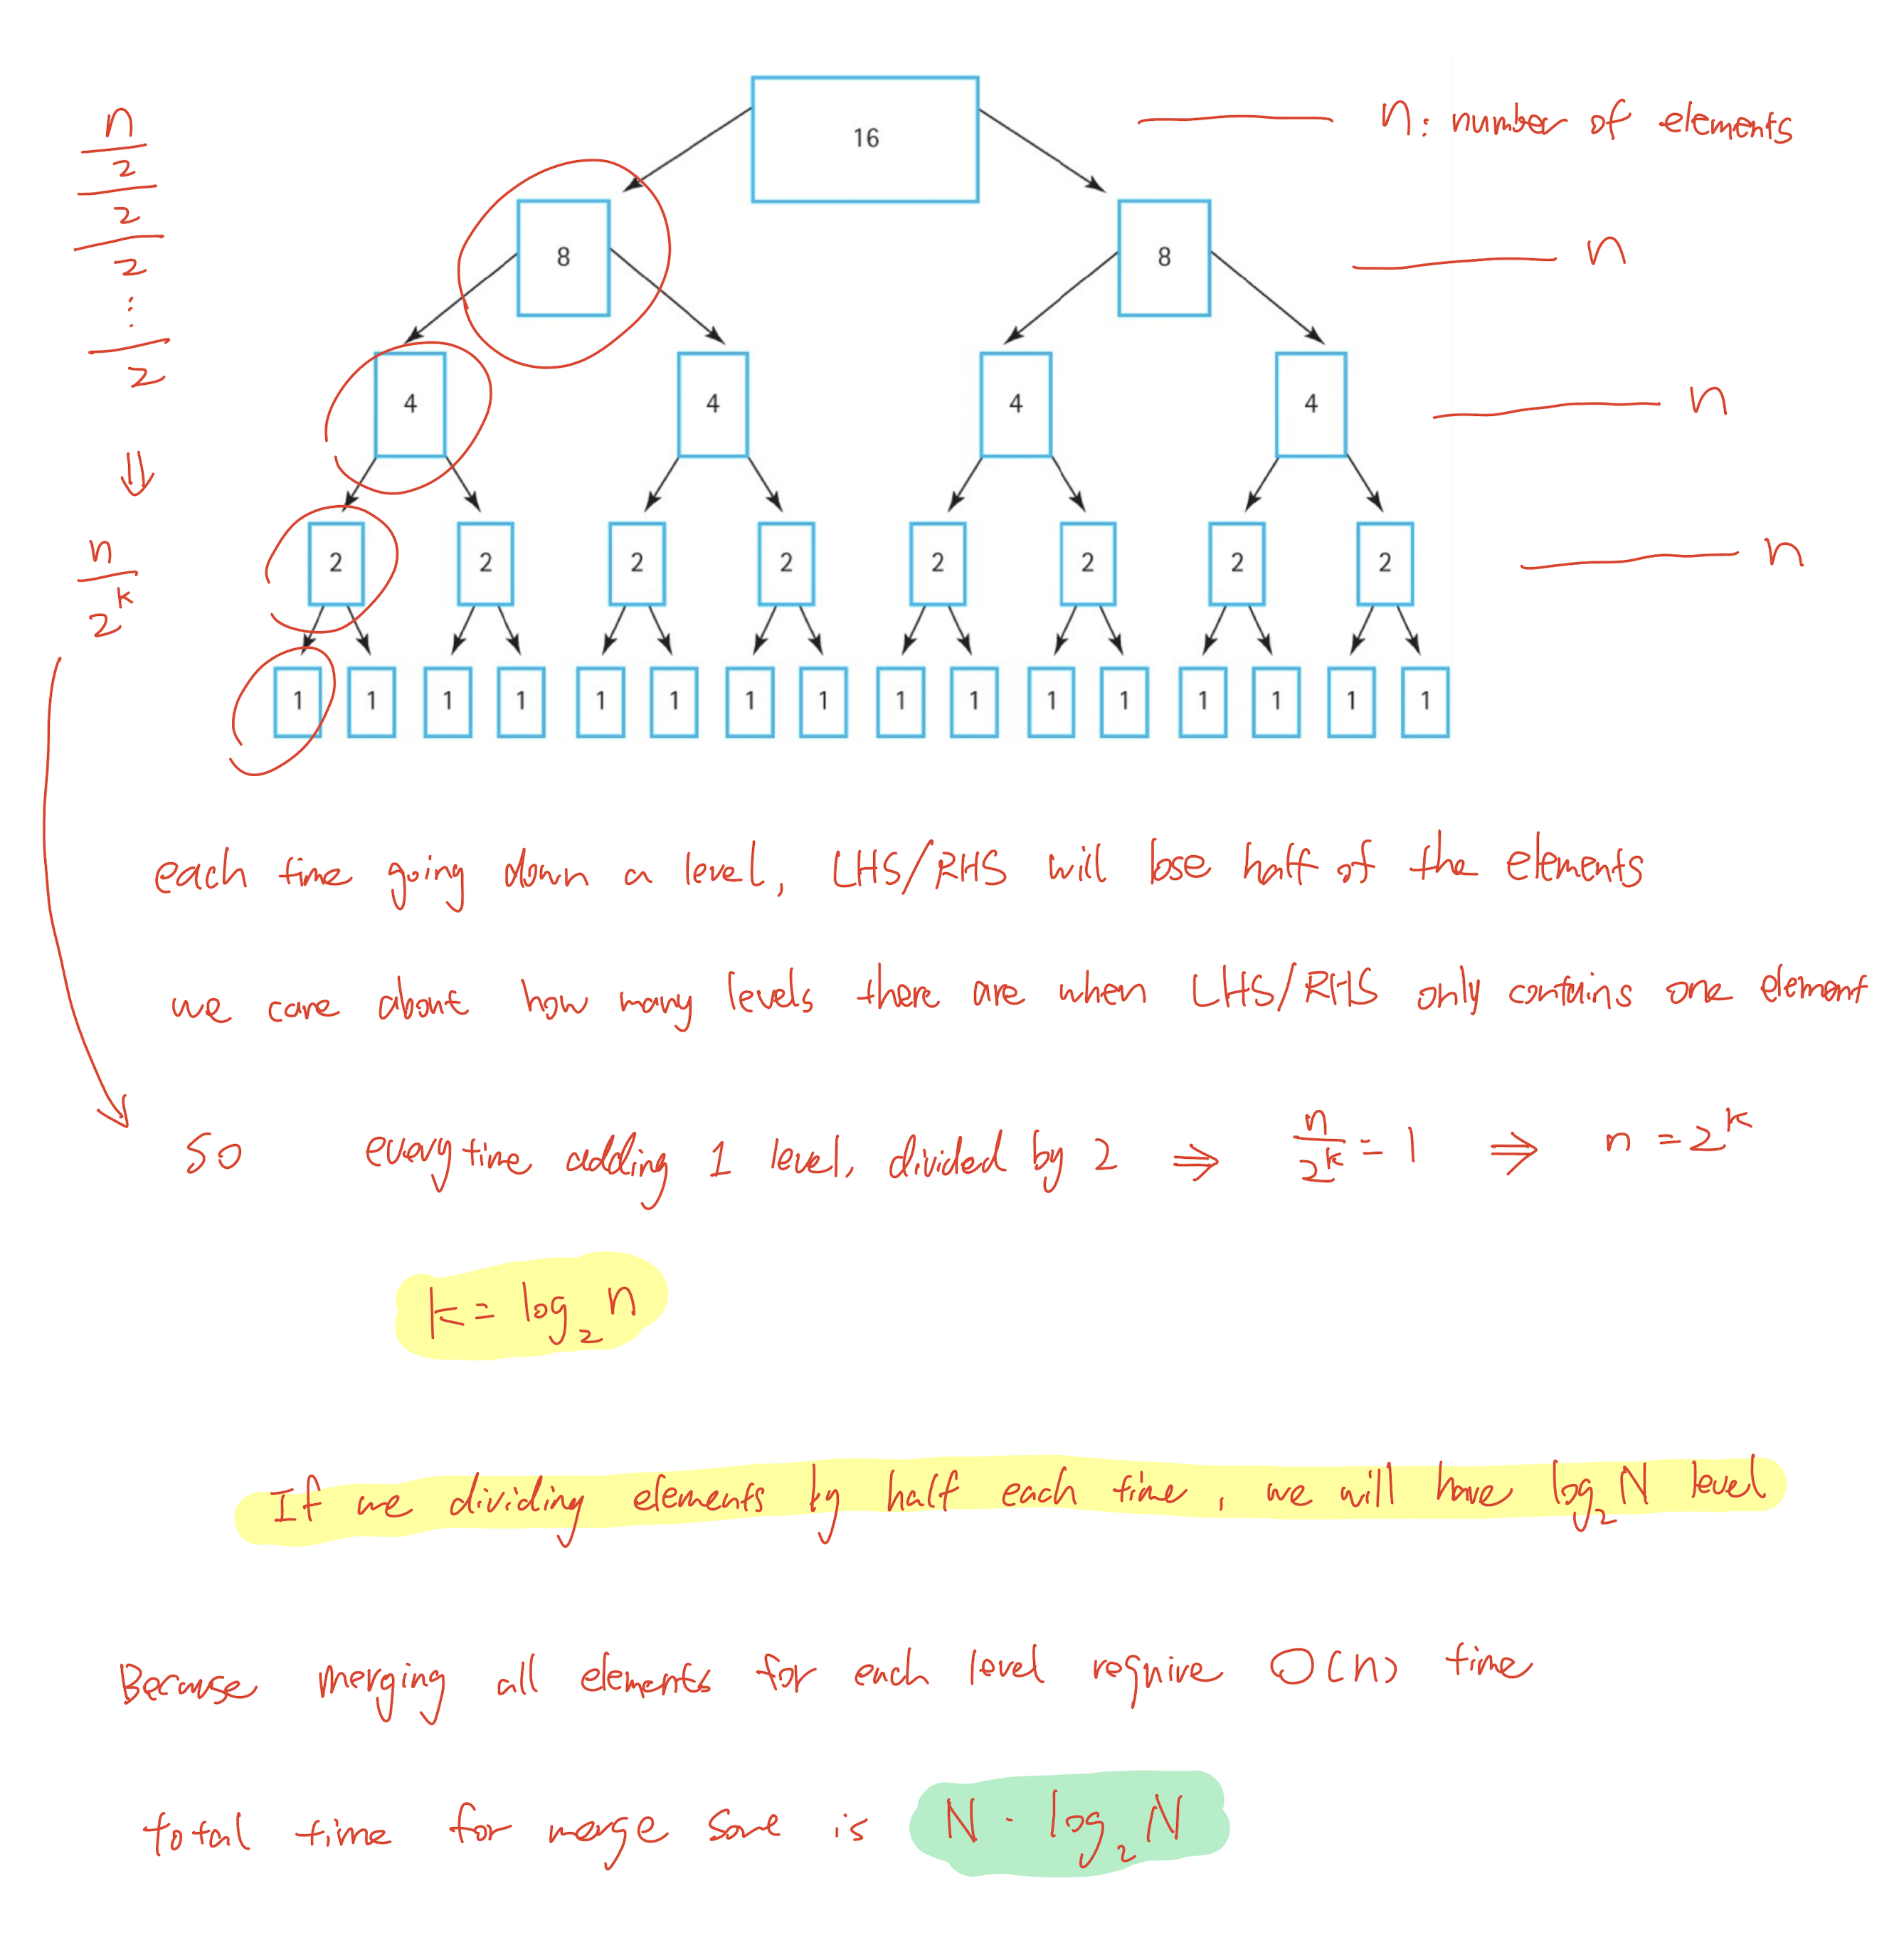 16
n: number of elements
n/2/2/2 ⋮ /2
8 8
n
4 4 4 4
n
⇓
n/2^k
2 2 2 2 2 2 2 2
n
1 1 1 1 1 1 1 1 1 1 1 1 1 1 1 1
each time going down a level, LHS/RHS will lose half of the elements
we care about how many levels there are when LHS/RHS only contains one element
so everytime adding 1 level, divided by 2 ⇒ n/2^k = 1 ⇒ n = 2^k
k = log₂ n
If we dividing elements by half each time, we will have log₂ N level
Because merging all elements for each level require O(n) time
total time for merge sore is N · log₂ N